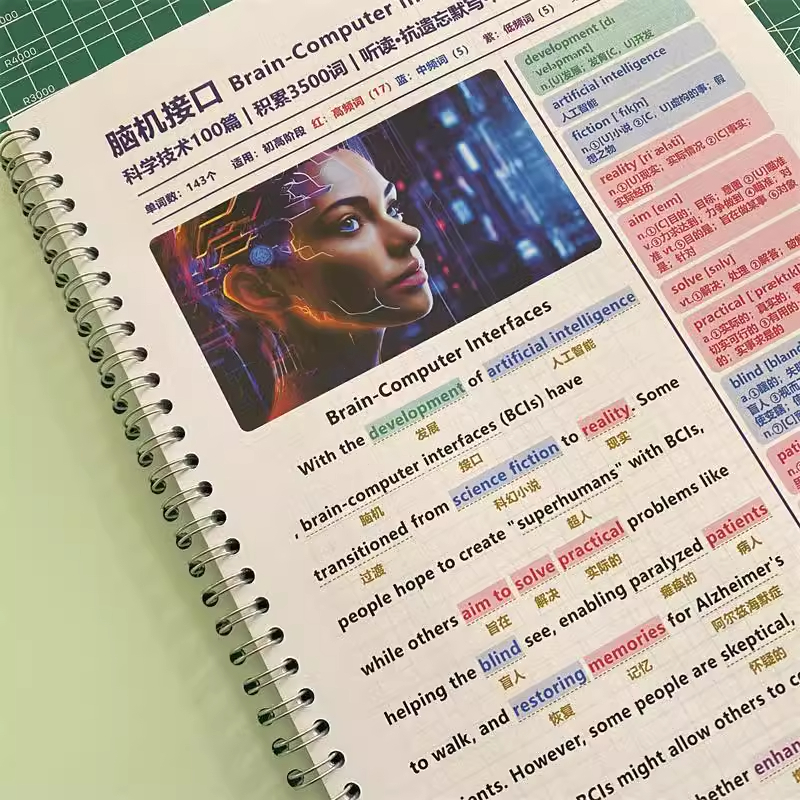 R4000
R3000
脑机接口 Brain-Computer In
科学技术100篇 | 积累3500词 | 听读·抗遗忘默写·
单词数：143个 适用：初高阶段 红：高频词（17） 蓝：中频词（5） 紫：低频词（5）
Brain-Computer Interfaces
With the development of artificial intelligence
发展 人工智能
, brain-computer interfaces (BCIs) have
脑机 接口
transitioned from science fiction to reality. Some
过渡 科幻小说 现实
people hope to create "superhumans" with BCIs,
超人
while others aim to solve practical problems like
旨在 解决 实际的
helping the blind see, enabling paralyzed patients
盲人 瘫痪的 病人
to walk, and restoring memories for Alzheimer's
恢复 记忆 阿尔兹海默症
ients. However, some people are skeptical,
怀疑的
BCIs might allow others to co
hether enhan
development [dɪ
ˈveləpmənt]
n.①[U]发展；发育[C, U]开发
artificial intelligence
人工智能
fiction [ˈfɪkʃn]
n.①[U]小说 ②[C, U]虚构的事；假
想之物
reality [riˈæləti]
n.①[U]现实；实际情况 ②[C]事实；
实际经历
aim [eɪm]
n.①[C]目的；目标；意图 ②[U]瞄准
v.③力求达到；力争做到 ④瞄准；对
准 vt.⑤目的是；旨在做某事 ⑥对象
是；针对
solve [sɒlv]
vt.①解决；处理 ②解答；破
practical [ˈpræktɪkl]
a.①实际的；真实的；
切实可行的 ③有用的
的；实事求是的
blind [blaɪnd]
a.①瞎的；失
盲人 ③视而
使变瞎；使
n.⑦[C]
patie